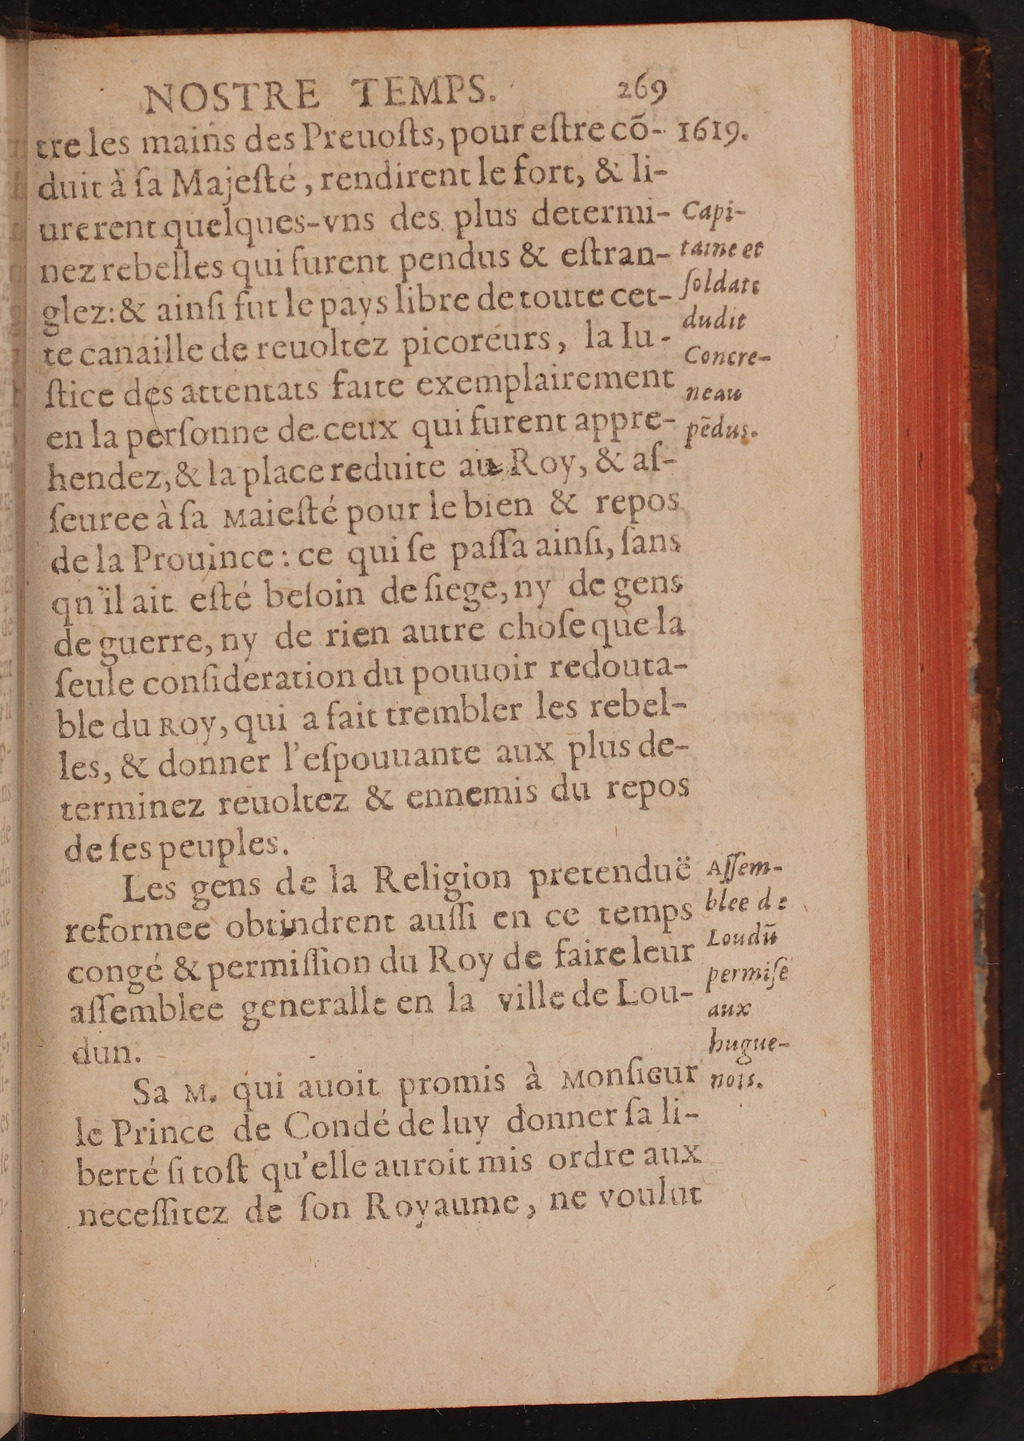 NOSTRE TEMPS. 269
tre les mains des Preuosts, pour estre cõ- 1619.
duit à sa Majesté, rendirent le fort, & li-
urerent quelques-vns des plus determi-
nez rebelles qui furent pendus & estran-
glez: & ainsi fut le pays libre de toute cet-
te canaille de reuoltez picoreurs, la Iu-
stice des attentats faite exemplairement
en la personne de ceux qui furent appre-
hendez, & la place reduite au Roy, & as-
seuree à sa Maiesté pour le bien & repos
de la Prouince: ce qui se passa ainsi, sans
qu'il ait esté besoin de siege, ny de gens
de guerre, ny de rien autre chose que la
seule consideration du pouuoir redouta-
ble du Roy, qui a fait trembler les rebel-
les, & donner l'espouuante aux plus de-
terminez reuoltez & ennemis du repos
de ses peuples.
Capi-
taine et
soldats
dudit
Concre-
neau
pẽdus.
Les gens de la Religion pretenduë
reformee obtindrent aussi en ce temps
congé & permission du Roy de faire leur
assemblee generalle en la ville de Lou-
dun.
Assem-
blee de
Loudũ
permise
aux
hugue-
nois.
Sa M. qui auoit promis à Monsieur
le Prince de Condé de luy donner sa li-
berté si tost qu'elle auroit mis ordre aux
necessitez de son Royaume, ne voulut